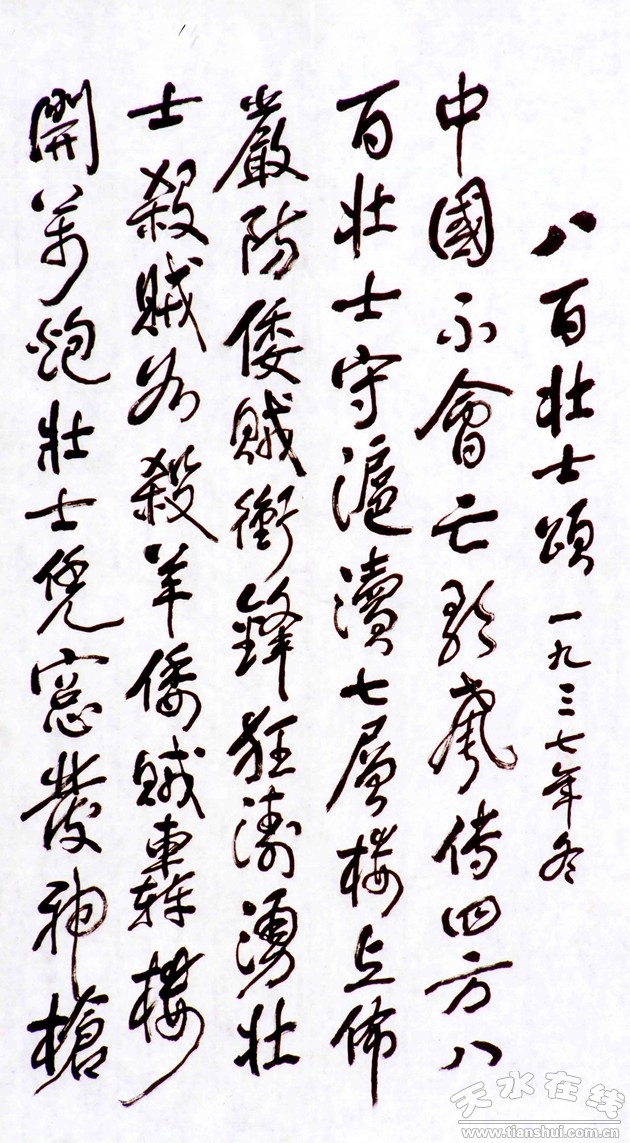 八百壯士頌 一九三七年冬
中國不會亡歌聲传四方八
百壯士守滬瀆七層楼上佈
嚴防倭賊衝鋒狂濤湧壯
士殺賊如殺羊倭賊轟樓
開萬炮壯士凭窓發神槍
天水在线
www.tianshui.com.cn